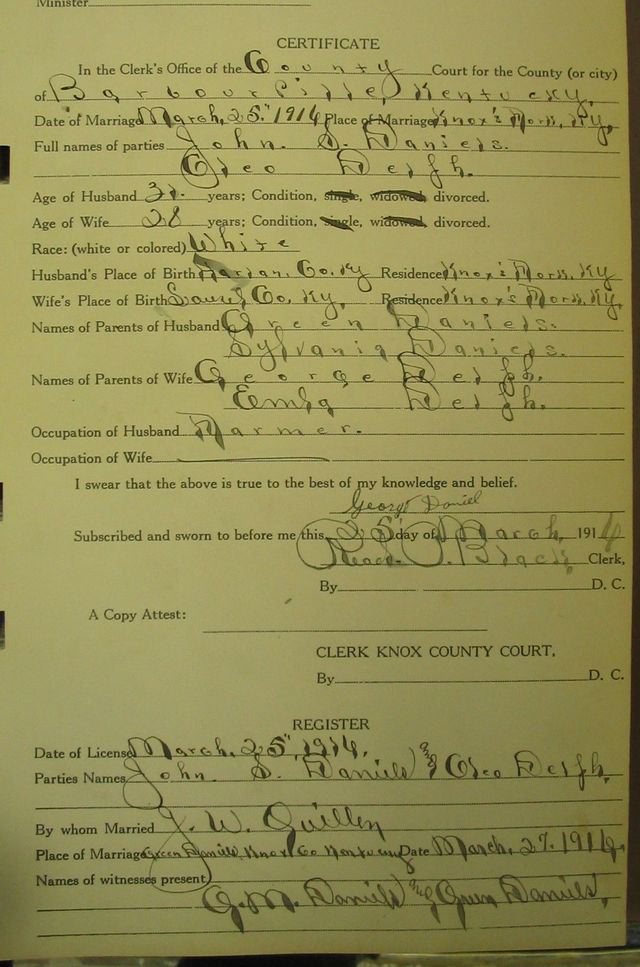 Minister
CERTIFICATE
In the Clerk's Office of the County Court for the County (or city)
of Barbourville, Kentucky.
Date of Marriage March, 25." 1914 Place of Marriage Knox's Ky,
Full names of parties John. S. Daniels.
Oleo
Age of Husband years; Condition, single, widowed, divorced.
Age of Wife 28 years; Condition, single, widowed, divorced.
Race: (white or colored) White
Husband's Place of Birth Harlan, Co. Ky Residence Knox's Ky
Wife's Place of Birth Laurel Co. Ky, Residence Knox's Ky.
Names of Parents of Husband Green Daniels.
Sylvania Daniels.
Names of Parents of Wife George
Occupation of Husband Farmer.
Occupation of Wife
I swear that the above is true to the best of my knowledge and belief.
George Daniel
Subscribed and sworn to before me this 25" day of March, 1914
Read P. Black Clerk,
By D. C.
A Copy Attest:
CLERK KNOX COUNTY COURT.
By D. C.
REGISTER
Date of License March, 25", 1914.
Parties Names John. S. Daniels & Oleo
By whom Married J. W. Quillen
Place of Marriage Green Daniels, Knox Co Kentucky Date March, 27. 1914.
Names of witnesses present, G. M. Daniels & Green Daniels,